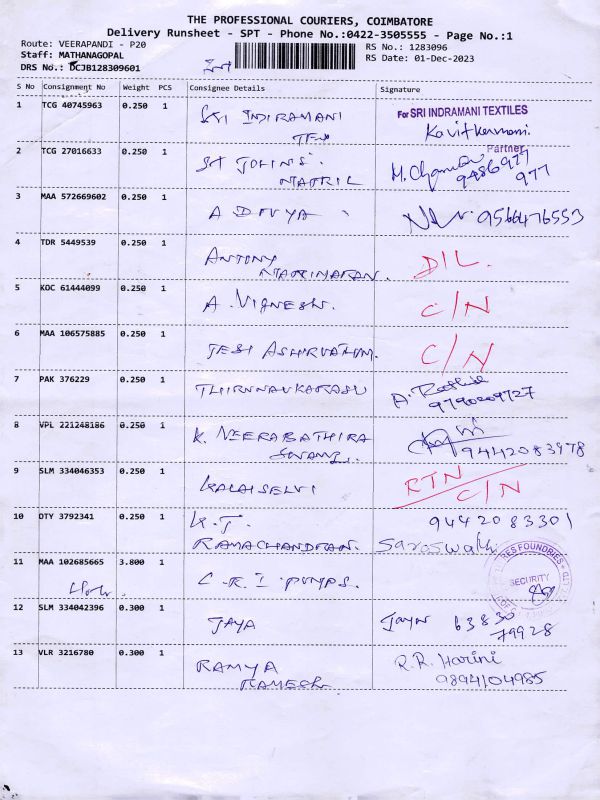 THE PROFESSIONAL COURIERS, COIMBATORE
Delivery Runsheet - SPT - Phone No.:0422-3505555 - Page No.:1
Route: VEERAPANDI - P20
RS No.: 1283096
Staff: MATHANAGOPAL
RS Date: 01-Dec-2023
DRS No.: DCJB128309601
S No Consignment No Weight PCS Consignee Details Signature
1 TCG 40745963 0.250 1 SRI INDIRAMANI For SRI INDRAMANI TEXTILES
TEX Kavitkermani.
Partner
2 TCG 27016633 0.250 1 ST JOHN'S
MATRIL 9486977
977
3 MAA 572669602 0.250 1 A DIVYA 9566476553
4 TDR 5449539 0.250 1 ANTONY D/L.
5 KOC 61444099 0.250 1 A. VIGNESH. C/N
6 MAA 106575885 0.250 1 JESI ASHIRVATHUM. C/N
7 PAK 376229 0.250 1 THIRUNAVKARASU A. Rathik
9790209727
8 VPL 221248186 0.250 1 K. VEERABATHIRA
SWAMI. 9442083978
9 SLM 334046353 0.250 1 KALAISELVI RTN
C/N
10 OTY 3792341 0.250 1 K.T. 9442083301
RAMACHANDRAN. Saroswathi
11 MAA 102685665 3.800 1 C.R.I PUMPS. RES FOUNDRIES
SECURITY
12 SLM 334042396 0.300 1 JAYA Jaya 63830
79928
13 VLR 3216780 0.300 1 RAMYA R.R. Harini
RAMESH 9894104985